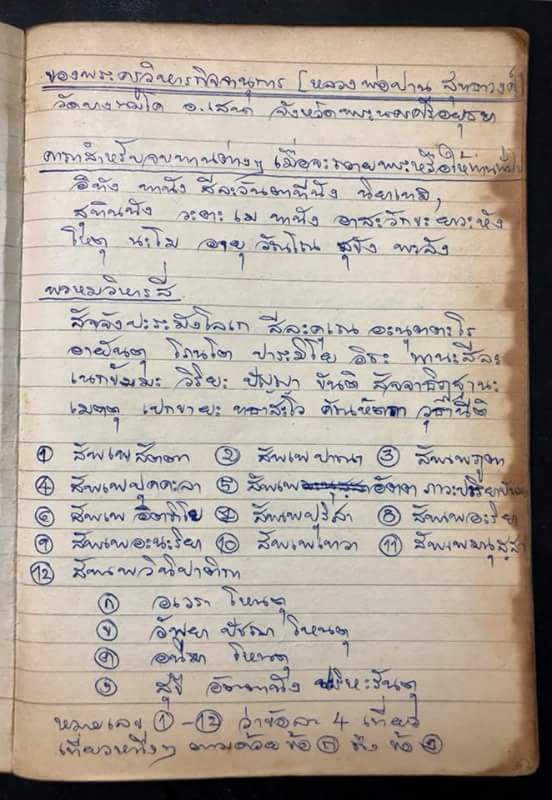 ของพระครูวิหารกิจจานุการ [หลวงพ่อปาน สุทธาวงศ์]
วัดบางนมโค อ.เสนา จังหวัดพระนครศรีอยุธยา
คาถาสำหรับจบทานต่างๆ เมื่อจะถวายพระหรือให้ทาน
อิทัง ทานัง สีละวันตานีนัง นิยเทมิ,
สุทินนัง วะตะ เม ทานัง อาสะวักขะยาวะหัง
โหตุ นะโม อายุ วัณโณ สุขัง พะลัง
พรหมวิหารสี่
สัจจังปะระมังโลเก สีละคุเณ อะนุตตะโร
อายันตุ โภนโต ปาระมิโย อิธะ ทานะสีละ
เนกขัมมะ วิริยะ ปัญญา ขันติ สัจจาธิฏฐานะ
เมตตุ เปกขายะ
① สัพเพ สัตตา ② สัพเพ ปาณา ③ สัพเพ ภูตา
④ สัพเพ ปุคคะลา ⑤ สัพเพ อัตตา ภาวะปะริยาปันนา
⑥ สัพเพ อิตถิโย ⑦ สัพเพ ปุริสา ⑧ สัพเพ อะริยา
⑨ สัพเพ อะนะริยา ⑩ สัพเพ เทวา ⑪ สัพเพ มนุสสา
⑫ สัพเพ วินิปาติกา
ก อเวรา โหนตุ
ข อัพยา ปัชฌา โหนตุ
ค อนีฆา โหนตุ
ง สุขี อัตตานัง ปริหะรันตุ
หมายเลข ① - ⑫ ว่าข้อละ 4 เที่ยว
เที่ยวหนึ่งๆ ตามด้วย ข้อ ก ถึง ข้อ ง